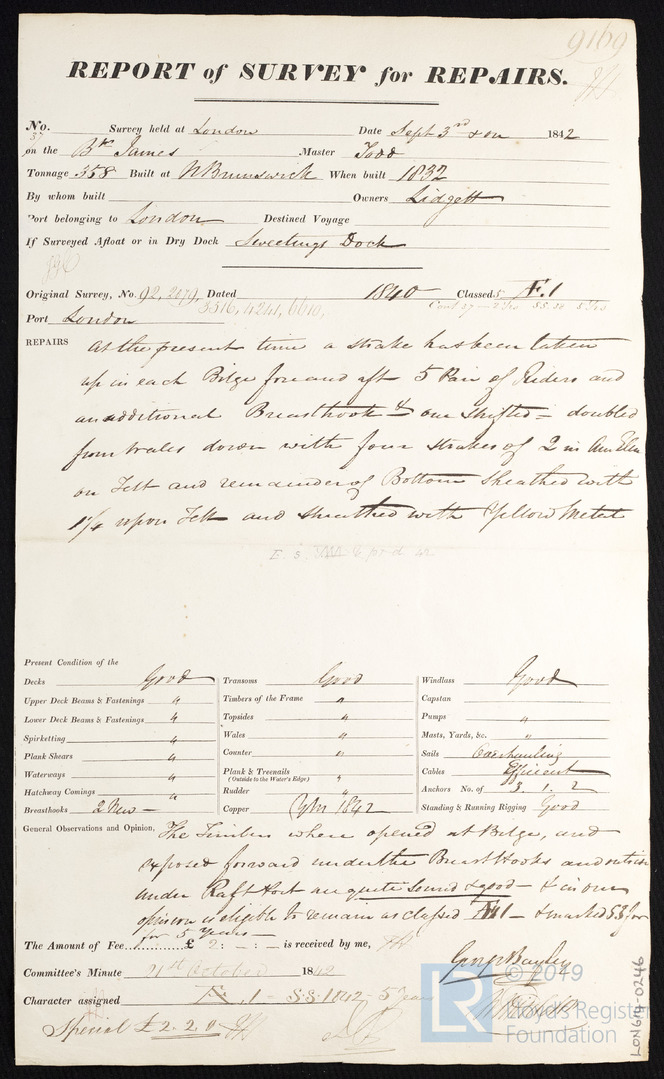 9169
REPORT of SURVEY for REPAIRS.
No. 37 Survey held at London Date Sept 3rd & on 1842
on the Bk James Master Todd
Tonnage 358 Built at N Brunswick When built 1832
By whom built Owners Lidgett
Port belonging to London Destined Voyage
If Surveyed Afloat or in Dry Dock Sweetings Dock
Original Survey, No. 92, 2079, Dated 1840 Classed Æ.1
3316, 4241, 6610,
Port London
REPAIRS At the present time a strake has been taken
up in each Bilge fore and aft 5 Pair of Riders and
an additional Breasthook & one shifted = doubled
from wales down with four strakes of 2 in Am Elm
on Felt and remainder of Bottom Sheathed with
1¼ upon Felt and sheathed with Yellow Metal
Present Condition of the
Decks Good Transoms Good Windlass Good
Upper Deck Beams & Fastenings " Timbers of the Frame " Capstan
Lower Deck Beams & Fastenings " Topsides " Pumps "
Spirketting " Wales " Masts, Yards, &c. "
Plank Shears " Counter " Sails Overhauling
Waterways " Plank & Treenails (Outside to the Water's Edge) " Cables Efficient
Hatchway Comings " Rudder " Anchors No. of 3. 1. 2
Breasthooks 2 New Copper Y M 1842 Standing & Running Rigging Good
General Observations and Opinion, The Timbers when opened at Bilge, and
exposed forward under the Breast Hooks and
under Raft Port are quite sound & good — & in our
opinion is eligible to remain as classed Æ 1 — & marked SS for
for 5 Years —
The Amount of Fee £ 2 : - : - is received by me,
George Bayley
Committee's Minute 21st October 1842
Character assigned Æ. 1 - S.S. 1842 5 Years
Special £ 2.2.0
© 2019
LR
Lloyd's Register
Foundation
LON614-0246